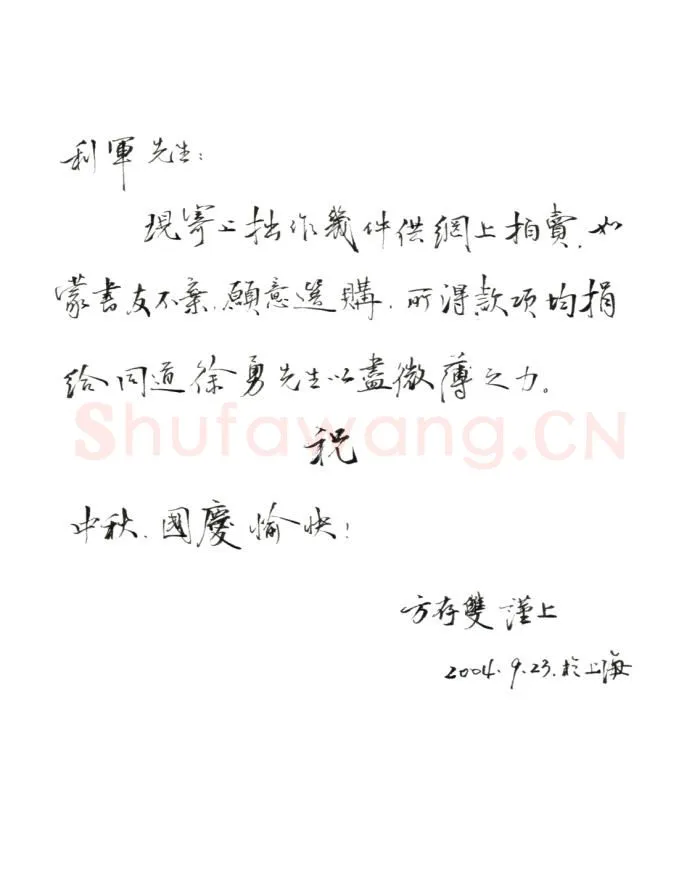 利軍先生：
現寄上拙作幾件供網上拍賣，如
蒙書友不棄，願意選購，所得款项均捐
给同道徐勇先生以盡微薄之力。
Shufawang.CN
祝
中秋、國慶愉快！
方存雙 謹上
2004.9.23.於上海